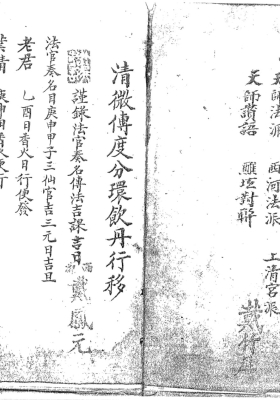 天師法派 西河法派 上清宮派
天師讚語 醮壇對聯
戴行
清微傳度分環飲丹行移
謹錄法官奏名傳法吉課吉日
戴鳳元
法官奏名日庚申甲子三仙官吉三元日吉且
老君 乙酉日香火日行使發